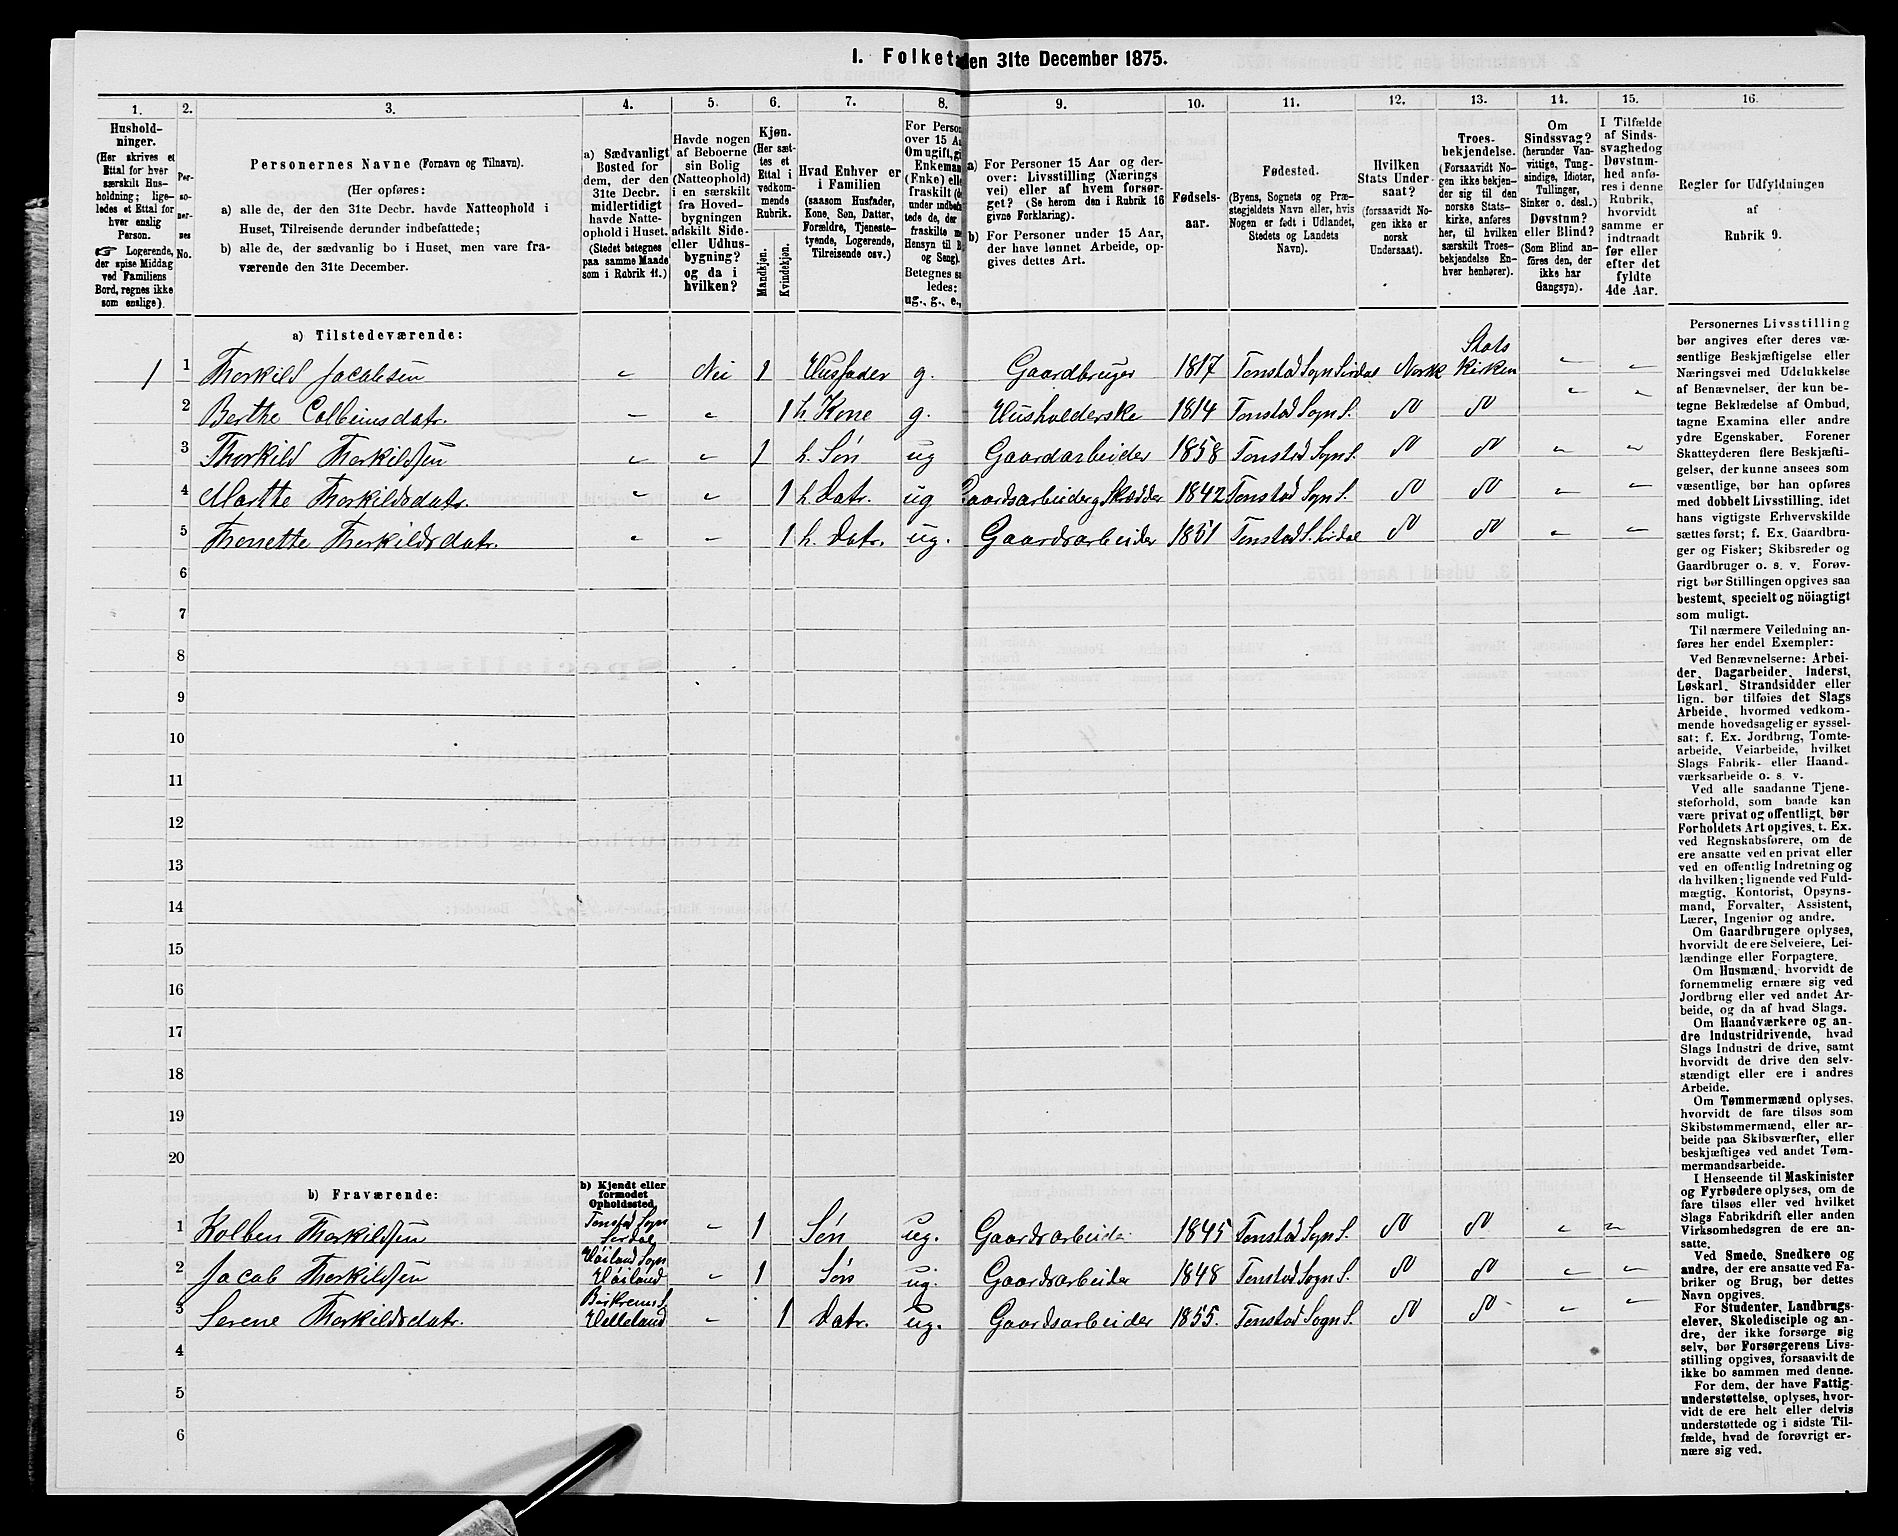 I. Folket
den 31te December 1875.
1.
2.
3.
4.
5.
6.
7.
8.
9.
10.
11.
12.
13.
14.
15.
16.
Hushold-
ninger.
(Her skrives et
Ettal for hver
særskilt Hus-
holdning; lige-
ledes et Ettal for
hver enslig
Person.
☞ Logerende,
der spise Middag
ved Familiens
Bord, regnes ikke
som enslige).
Per-
so-
ner-
nes
No.
Personernes Navne (Fornavn og Tilnavn).
(Her opføres:
a) alle de, der den 31te Decbr. havde Natteophold i
Huset, Tilreisende derunder indbefattede;
b) alle de, der sædvanlig bo i Huset, men vare fra-
værende den 31te December.
a) Sædvanligt
Bosted for
dem, der den
31te Decbr.
midlertidigt
havde Natte-
ophold i Huset.
(Stedet betegnes
paa samme Maade
som i Rubrik 11.)
Havde nogen
af Beboerne
sin Bolig
(Natteophold)
i en særskilt
fra Hoved-
bygningen
adskilt Side-
eller Udhus-
bygning?
og da i
hvilken?
Kjøn.
(Her sæt-
tes et
Ettal i
vedkom-
mende
Rubrik.
Mandkjøn.
Kvindekjøn.
Hvad Enhver er
i Familien
(saasom Husfader,
Kone, Søn, Datter,
Forældre, Tjeneste-
tyende, Logerende,
Tilreisende osv.)
For Person
over 15 A
Om ugift, gi
Enkeman
(Enke) elle
fraskilt (d
under indbe
tede de, der
fraskilte m
Hensyn til B
og Seng).
Betegnes sa
ledes:
ug., g., e.,
a) For Personer 15 Aar og der-
over: Livsstilling (Nærings
vei) eller af hvem forsør-
get? (Se herom den i Rubrik 16
givne Forklaring).
b) For Personer under 15 Aar,
der have lønnet Arbeide, op-
gives dettes Art.
Fødsels-
aar.
Fødested.
(Byens, Sognets og Præ-
stegjeldets Navn eller, hvis
Nogen er født i Udlandet,
Stedets og Landets
Navn).
Hvilken
Stats Under-
saat?
(forsaavidt No-
gen ikke er
norsk
Undersaat).
Troes-
bekjendelse.
(Forsaavidt No-
gen ikke bekjen-
der sig til den
norske Stats-
kirke, anføres
her, til hvilken
særskilt Troes-
bekjendelse En-
hver henhører).
Om
Sindssvag?
(herunder Van-
vittige, Tung-
sindige, Idioter,
Tullinger,
Sinker o. desl.)
Døvstum?
eller Blind?
(Som Blind an-
føres den, der
ikke har
Gangsyn).
I Tilfælde
af Sinds-
svaghed og
Døvstum-
hed anfø-
res i denne
Rubrik,
hvorvidt
samme er
indtraadt
før eller
efter det
fyldte
4de Aar.
Regler for Udfyldningen
af
Rubrik 9.
a) Tilstedeværende:
1 1 Thorkild Jacobsen „ Nei 1 Husfader g. Gaardbruger 1817 Tonstad Sogn Sirdal Norsk Stats Kirken „ „
2 Berthe Colbeinsdatr. „ „ 1 h. Kone g. Husholderske 1814 Tonstad Sogn S. do do „ „
3 Thorkild Thorkildsen „ „ 1 h. Søn ug Gaardarbeider 1858 Tonstad Sogn S. do do „ „
4 Marthe Thorkildsdatr. „ „ 1 h. Datr. ug Gaardsarbeider og Skrædder 1842 Tonstad Sogn S. do do „ „
5 Thonette Thorkildsdatr. „ „ 1 h. Datr. ug. Gaardsarbeider 1851 Tonstad S. Sirdal do do „ „
6
7
8
9
10
11
12
13
14
15
16
17
18
19
20
b) Fraværende:
b) Kjendt eller
formodet
Opholdssted,
1 Kolben Thorkildsen Tonstad Sogn Serdal „ 1 Søn ug. Gaardsarbeider 1845 Tonstad Sogn S. do do „ „
2 Jacob Thorkildsen Høiland Sogn Høiland „ 1 Søn ug. Gaardsarbeider 1848 Tonstad Sogn S. do do „ „
3 Serene Thorkildsdatr. Birkrem S. Helleland „ 1 Datr. ug. Gaardsarbeider 1855. Tonstad Sogn S. do do „ „
4
5
6
Personernes Livsstilling
bør angives efter deres væ-
sentlige Beskjæftigelse eller
Næringsvei med Udelukkelse
af Benævnelser, der kun be-
tegne Beklædelse af Ombud,
tagne Examina eller andre
ydre Egenskaber. Forener
Skatteyderen flere Beskjæfti-
gelser, der kunne ansees som
væsentlige, bør han opføres
med dobbelt Livsstilling, idet
hans vigtigste Erhvervskilde
sættes først; f. Ex. Gaardbru-
ger og Fisker; Skibsreder og
Gaardbruger o. s. v. Forøv-
rigt bør Stillingen opgives saa
bestemt, specielt og nöiagtigt
som muligt.
Til nærmere Veiledning an-
føres her endel Exempler:
Ved Benævnelserne: Arbei-
der, Dagarbeider, Inderst,
Løskarl, Strandsidder eller
lign. bør tilføies det Slags
Arbeide, hvormed vedkom-
mende hovedsagelig er syssel-
sat; f. Ex. Jordbrug, Tomte-
arbeide, Veiarbeide, hvilket
Slags Fabrik- eller Haand-
værksarbeide o. s. v.
Ved alle saadanne Tjene-
steforhold, som baade kan
være privat og offentligt, bør
Forholdets Art opgives, t. Ex.
ved Regnskabsførere, om de
ere ansatte ved en privat eller
ved en offentlig Indretning og
da hvilken; lignende ved Fuld-
mægtig, Kontorist, Opsyns-
mand, Forvalter, Assistent,
Lærer, Ingeniør og andre.
Om Gaardbrugere oplyses,
hvorvidt de ere Selveiere, Lei-
lændinge eller Forpagtere.
Om Husmænd, hvorvidt de
fornemmelig ernære sig ved
Jordbrug eller ved andet Ar-
beide, og da af hvad Slags.
Om Haandværkere og an-
dre Industridrivende, hvad
Slags Industri de drive, samt
hvorvidt de drive den selv-
stændigt eller ere i andres
Arbeide.
Om Tømmermænd oplyses,
hvorvidt de fare tilsøs som
Skibstømmermænd, eller ar-
beide paa Skibsværfter, eller
beskjæftiges ved andet Tøm-
mermandsarbeide.
I Henseende til Maskinister
og Fyrbødere oplyses, om de
fare tilsøs eller ved hvilket
Slags Fabrikdrift eller anden
Virksomhedsgren de ere an-
satte.
Ved Smede, Snedkere og
andre, der ere ansatte ved Fa-
briker og Brug, bør dettes
Navn opgives.
For Studenter, Landbrugs-
elever, Skoledisciple og an-
dre, der ikke forsørge sig
selv, bør Forsørgerens Livs-
stilling opgives, forsaavidt de
ikke bo sammen med denne.
For dem, der have Fattig-
understøttelse, oplyses, hvor-
vidt de ere helt eller delvis
understøttede og i sidste Til-
fælde, hvad de forøvrigt er-
nære sig ved.